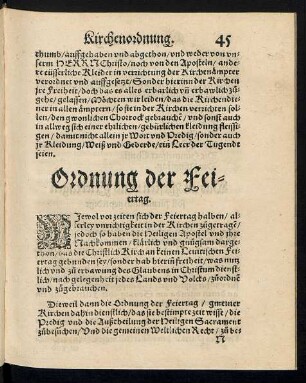 Kirchenordnung. 45
thumb/auffgehaben vnd abgethon/vnd weder von vn-
serm HERRN Christo/noch von den Aposteln/ ande-
re eüsserliche Kleider in verrichtung der Kirchenämpter
verordnet vnd auffgesetzt/ Sonder hierinn der Kirchen
jre Freiheit/ doch das es alles erbarlich vñ erbawlich zů-
gehe/ gelassen/ Möchten wir leiden/ das die Kirchendie-
ner in allen ämptern/ so sie in der Kirchen verrichten sol-
len/ den gwonlichen Chorrock gebrauchē/ vnd sonst auch
in allweg sich einer ehrlichen/ gebürlichen kleidung fleissi-
gen/ damit nicht allein jr Wort vnd Predig/ sonder auch
jr Kleidung/ Weiß vnd Geberde/ ein Leer der Tugendt
seien.
Ordnung der Fei-
ertag.
Wiewol vor zeiten sich der Feiertag halben/ al-
lerley vnrichtigkeit in der Kirchen zůgetragē/
jedoch so haben die Heiligen Apostel vnd jhre
Nachkommen/ klärlich vnd gnůgsam darge-
thon/ das die Christlich Kirch an keinen Leuitischen Fei-
ertag gebunden sey/ sonder hab hierin freiheit/ was nutz-
lich vnd zů erbawung des Glaubens in Christum dienst-
lich/ nach gelegenheit jedes Lands vnd Volcks/ zůordnē
vnd zůgebrauchen.
Dieweil dann die Ordnung der Feiertag/ gmeiner
Kirchen dahin dienstlich/ das sie bestimpte zeit wisse/ die
Predig vnd die Außtheilung der Heiligen Sacrament
zůbesůchen/ Vnd die gemeinen Weltlichen Recht/ zů bes-
N